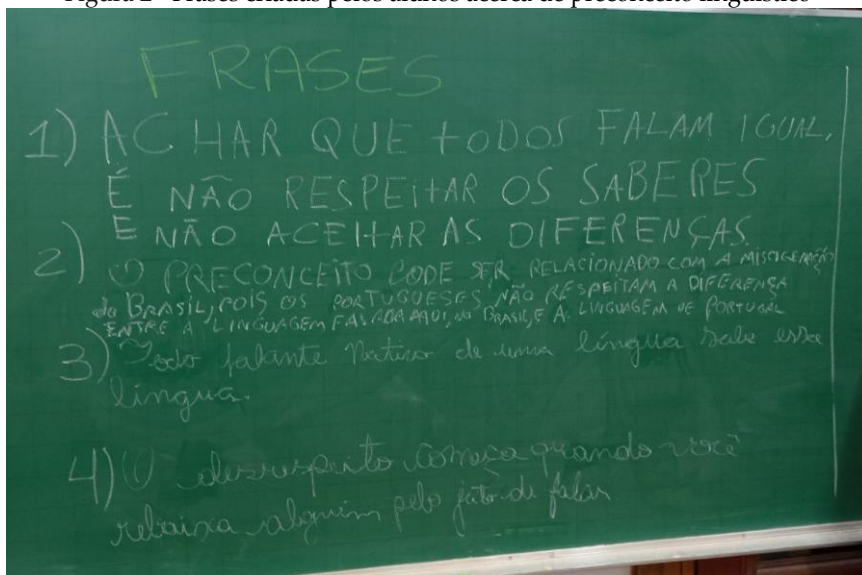 Figura 2 - Frases criadas pelos alunos acerca de preconceito linguístico
FRASES
1) ACHAR QUE TODOS FALAM IGUAL,
É NÃO RESPEITAR OS SABERES
E NÃO ACEITAR AS DIFERENÇAS.
2) O PRECONCEITO PODE SER RELACIONADO COM A MISCIGENAÇÃO
do BRASIL, POIS OS PORTUGUESES, NÃO RESPEITAM A DIFERENÇA
ENTRE A LINGUAGEM FALADA AQUI, no BRASIL, E A LINGUAGEM DE PORTUGAL
3) Todo falante nativo de uma língua sabe essa
língua.
4) O desrespeito começa quando você
rebaixa alguém pelo jeito de falar